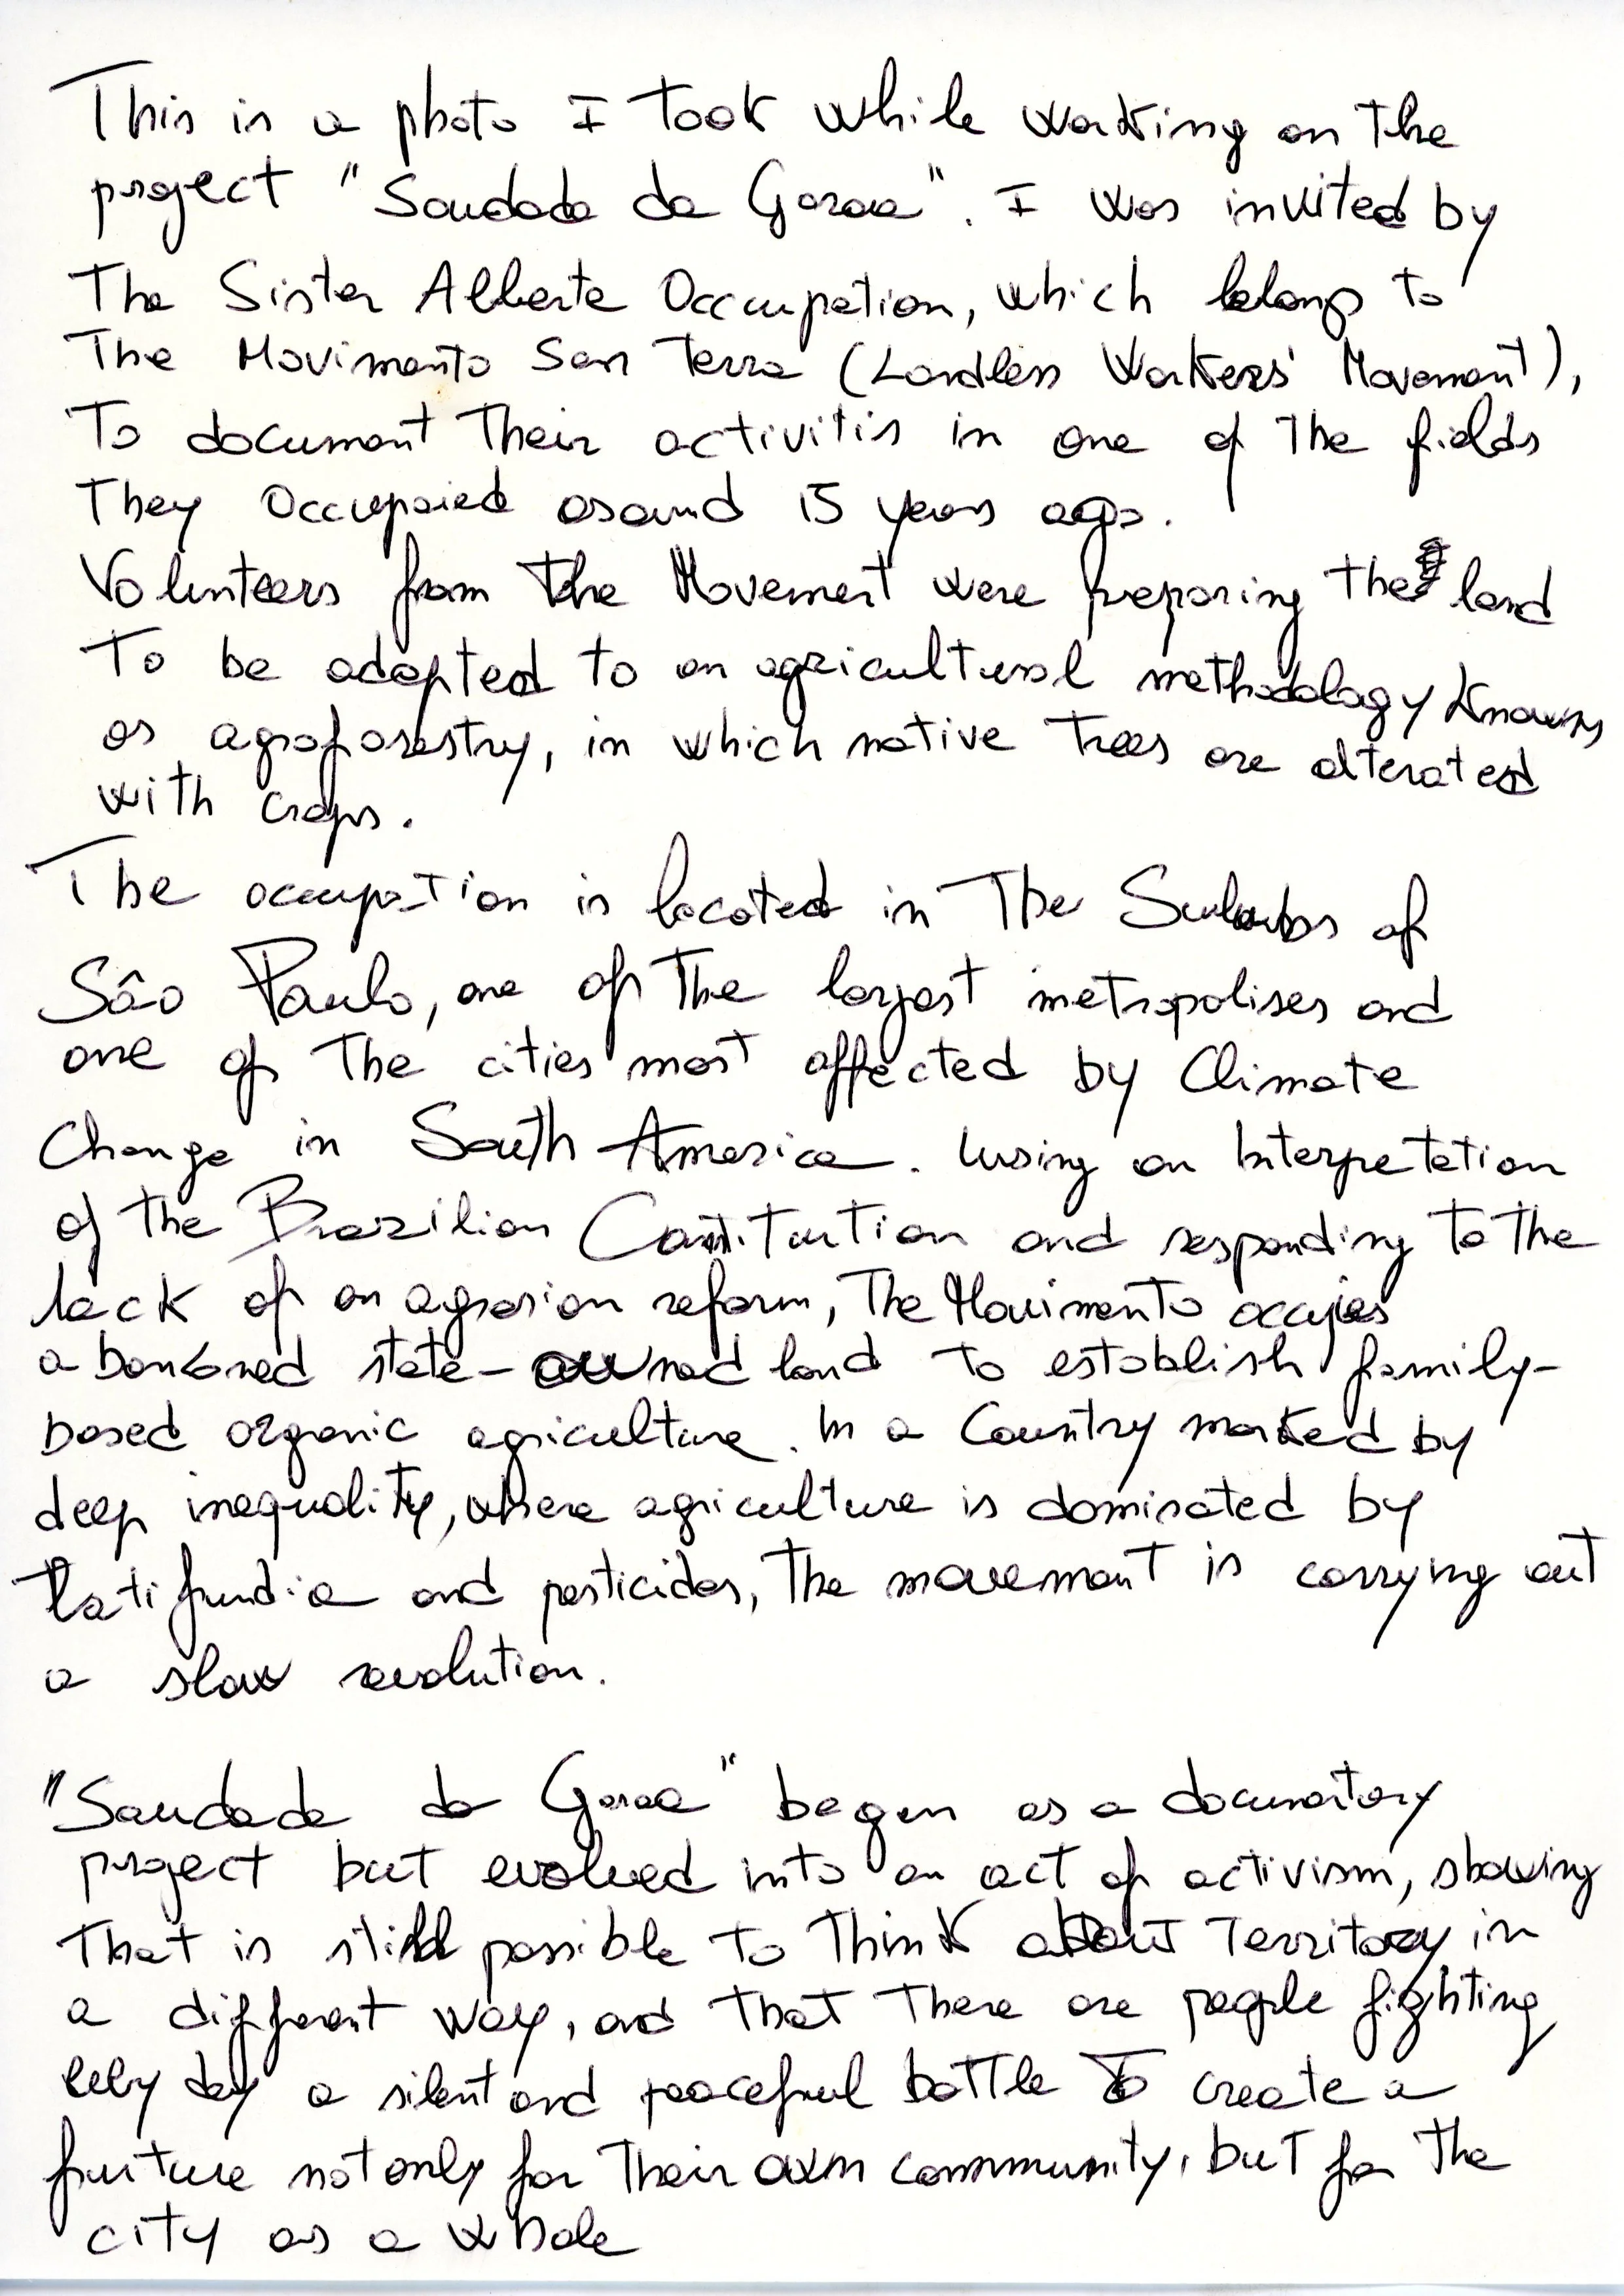 This is a photo I took while working on the
project "Saudade da Garoa". I was invited by
The Sister Alberta Occupation, which belongs to
The Movimento Sem Terra (Landless Workers' Movement),
To document Their activitis in one of The fields
They Occupaied around 15 years ago.
Volunteers from The Movement were preparing the land
To be adapted to an agricultural methodology known
as agroforestry, in which native Trees are alterated
with crops.
The occupation is located in The Suburbs of
São Paulo, one of The largest metropolises and
one of The cities most affected by Climate
Change in South America. Using an Interpretation
of The Brazilian Constitution and responding To The
lack of an agrarian reform, The Movimento occupies
abandoned state-owned land to establish family-
based organic agriculture. In a Country marked by
deep inequality, where agriculture is dominated by
latifundia and pesticides, The movement is carrying out
a slow revolution.
"Saudade da Garoa" began as a documentary
project but evolved into an act of activism, showing
That is still possible to Think about Territory in
a different way, and that There are people fighting
every day a silent and peaceful battle To create a
future not only for Their own community, but for The
city as a whole